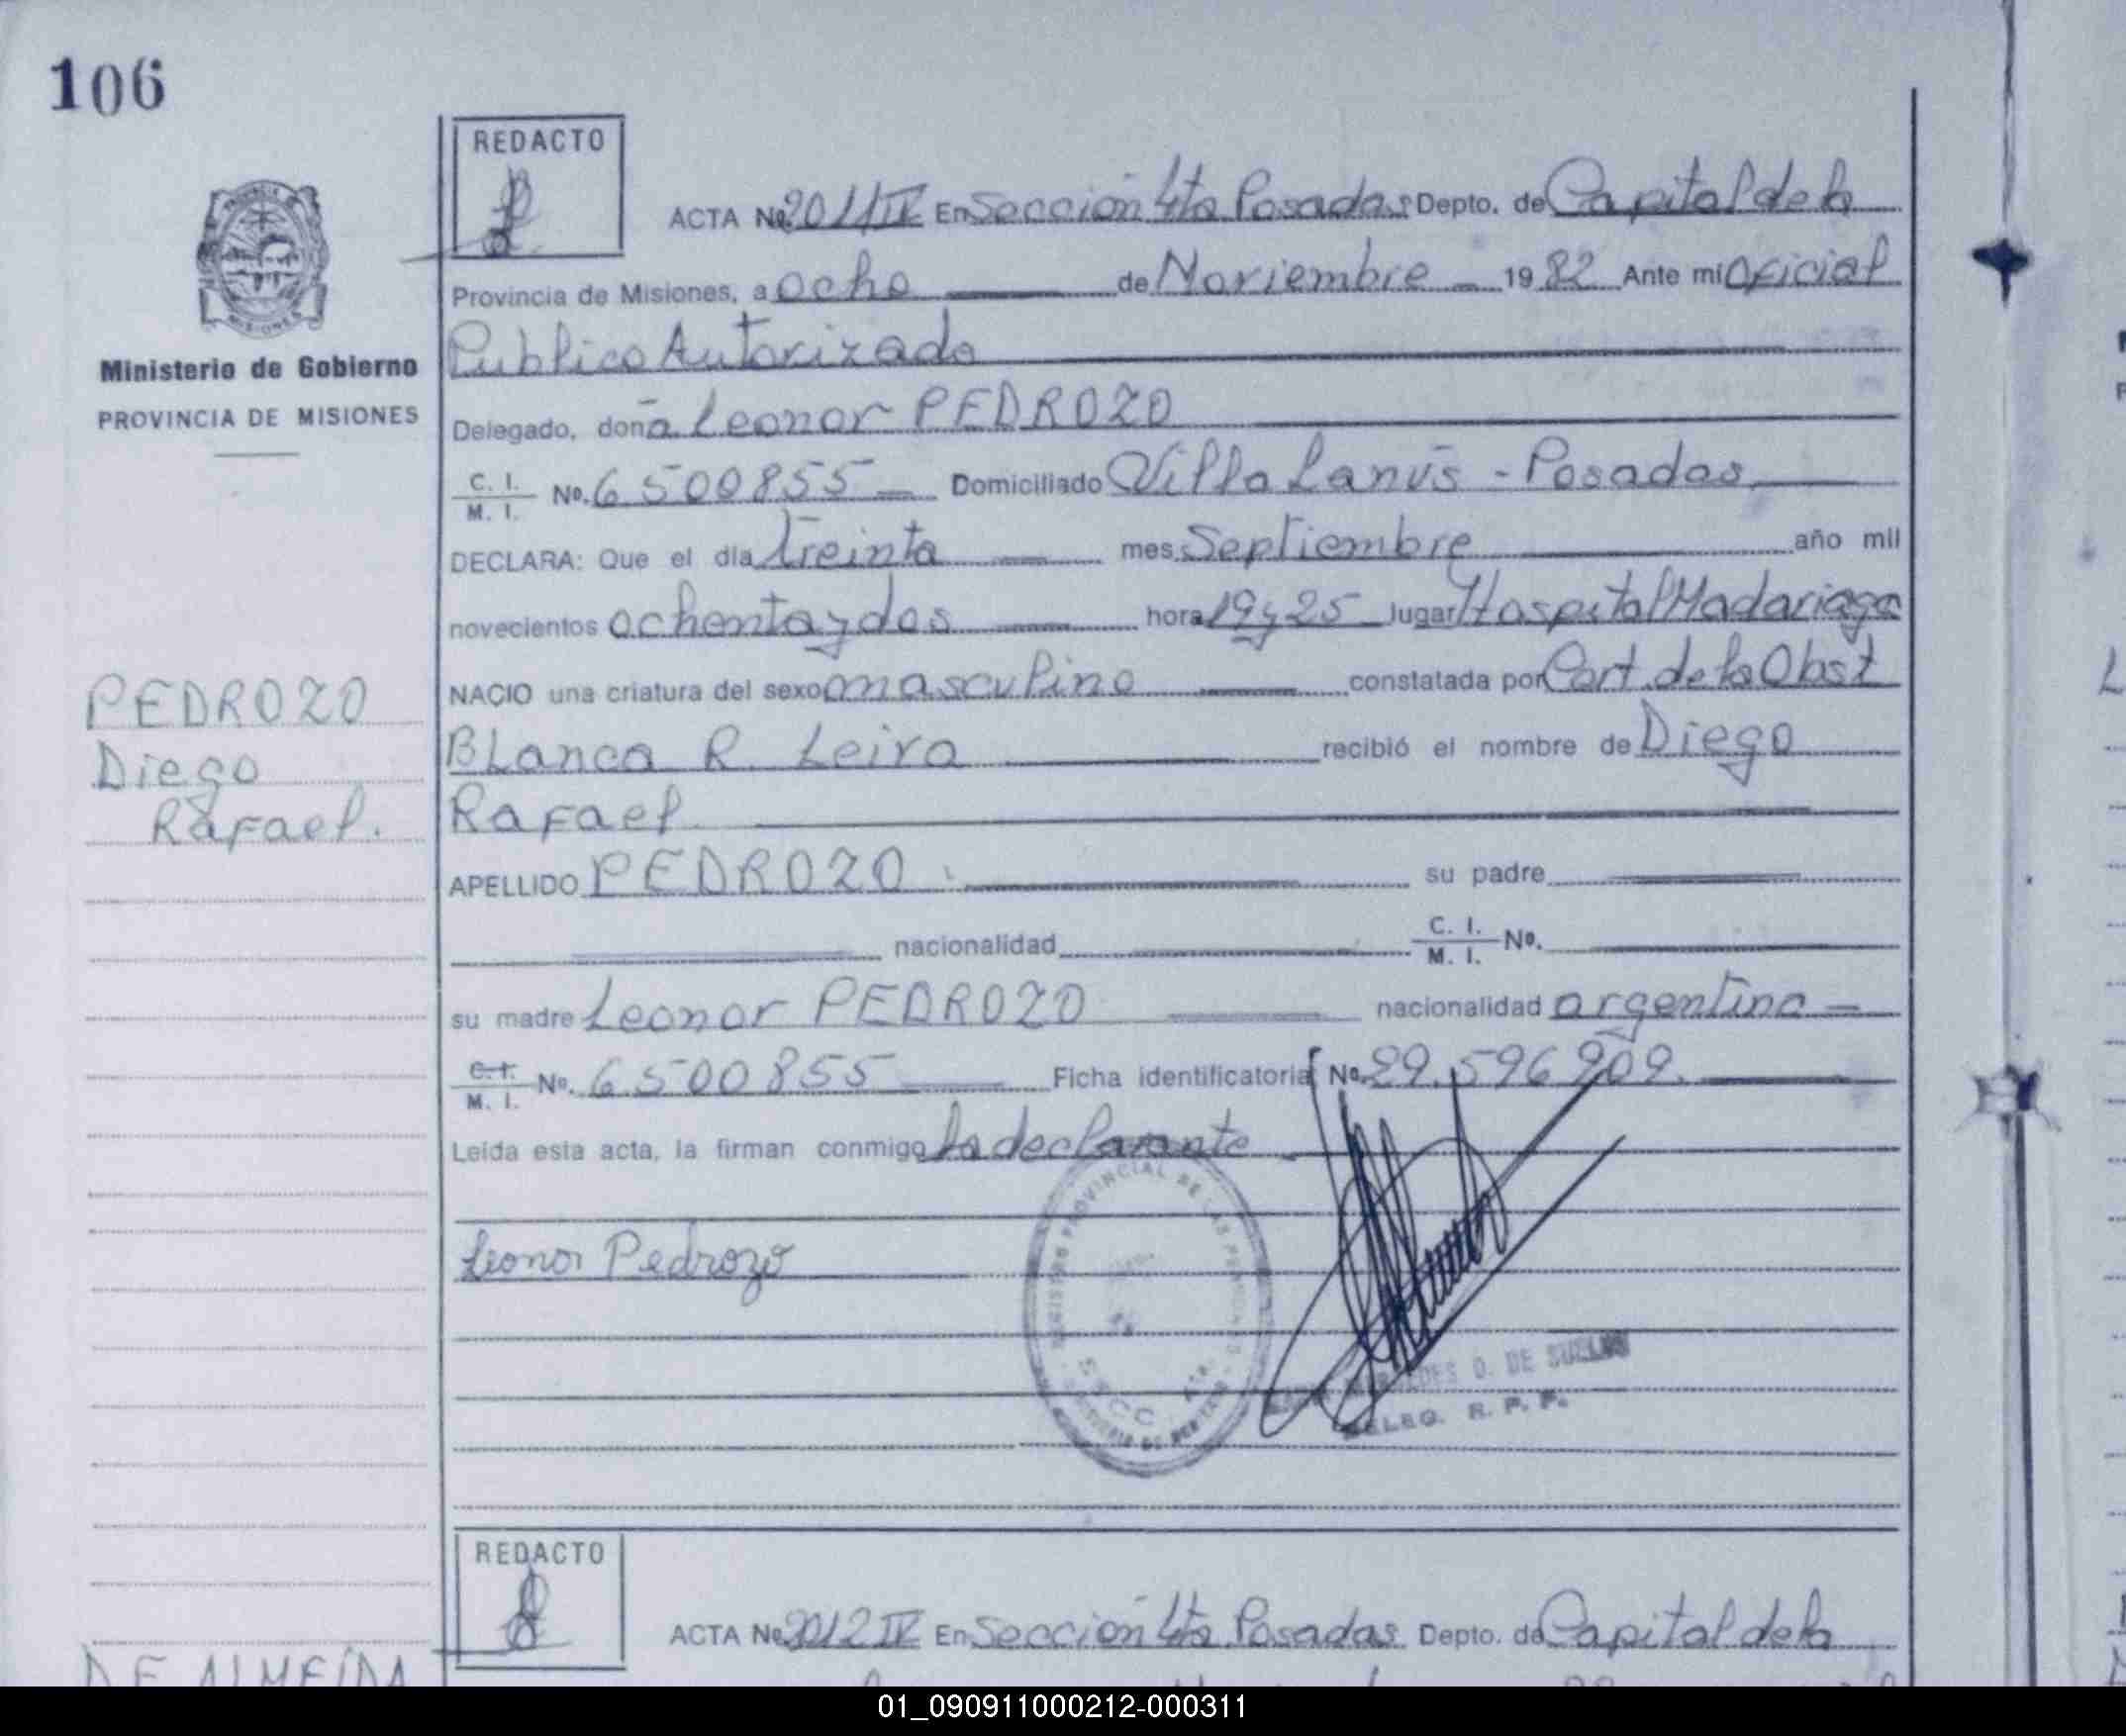 106
REDACTO
ACTA No 2011 IV En Sección 4ta Posadas Depto. de Capital de la
Provincia de Misiones, a ocho de Noviembre 1982 Ante mi Oficial
Publico Autorizado
Ministerio de Gobierno
PROVINCIA DE MISIONES
Delegado, doña Leonor PEDROZO
C. I. M. I. No. 6500855 Domiciliado Villa Lanús - Posadas
DECLARA: Que el día treinta mes Septiembre año mil
novecientos ochenta y dos hora 19 y 25 lugar Hospital Madariaga
NACIO una criatura del sexo masculino constatada por Cert. de la Obst
Blanca R. Leiva recibió el nombre de Diego
Rafael
PEDROZO
Diego
Rafael.
APELLIDO PEDROZO su padre
nacionalidad C. I. M. I. No.
su madre Leonor PEDROZO nacionalidad argentina
C. I. M. I. No. 6.500855 Ficha identificatoria No. 29.596909.
Leída esta acta, la firman conmigo la declarante
Leonor Pedrozo
REGISTRO PROVINCIAL DE LAS PERSONAS
SECC. 4TA.
D. DE
DELEG. R. P. P.
REDACTO
ACTA No 2012 IV En Sección 4ta Posadas Depto. de Capital de la
DE ALMEIDA
01_090911000212-000311